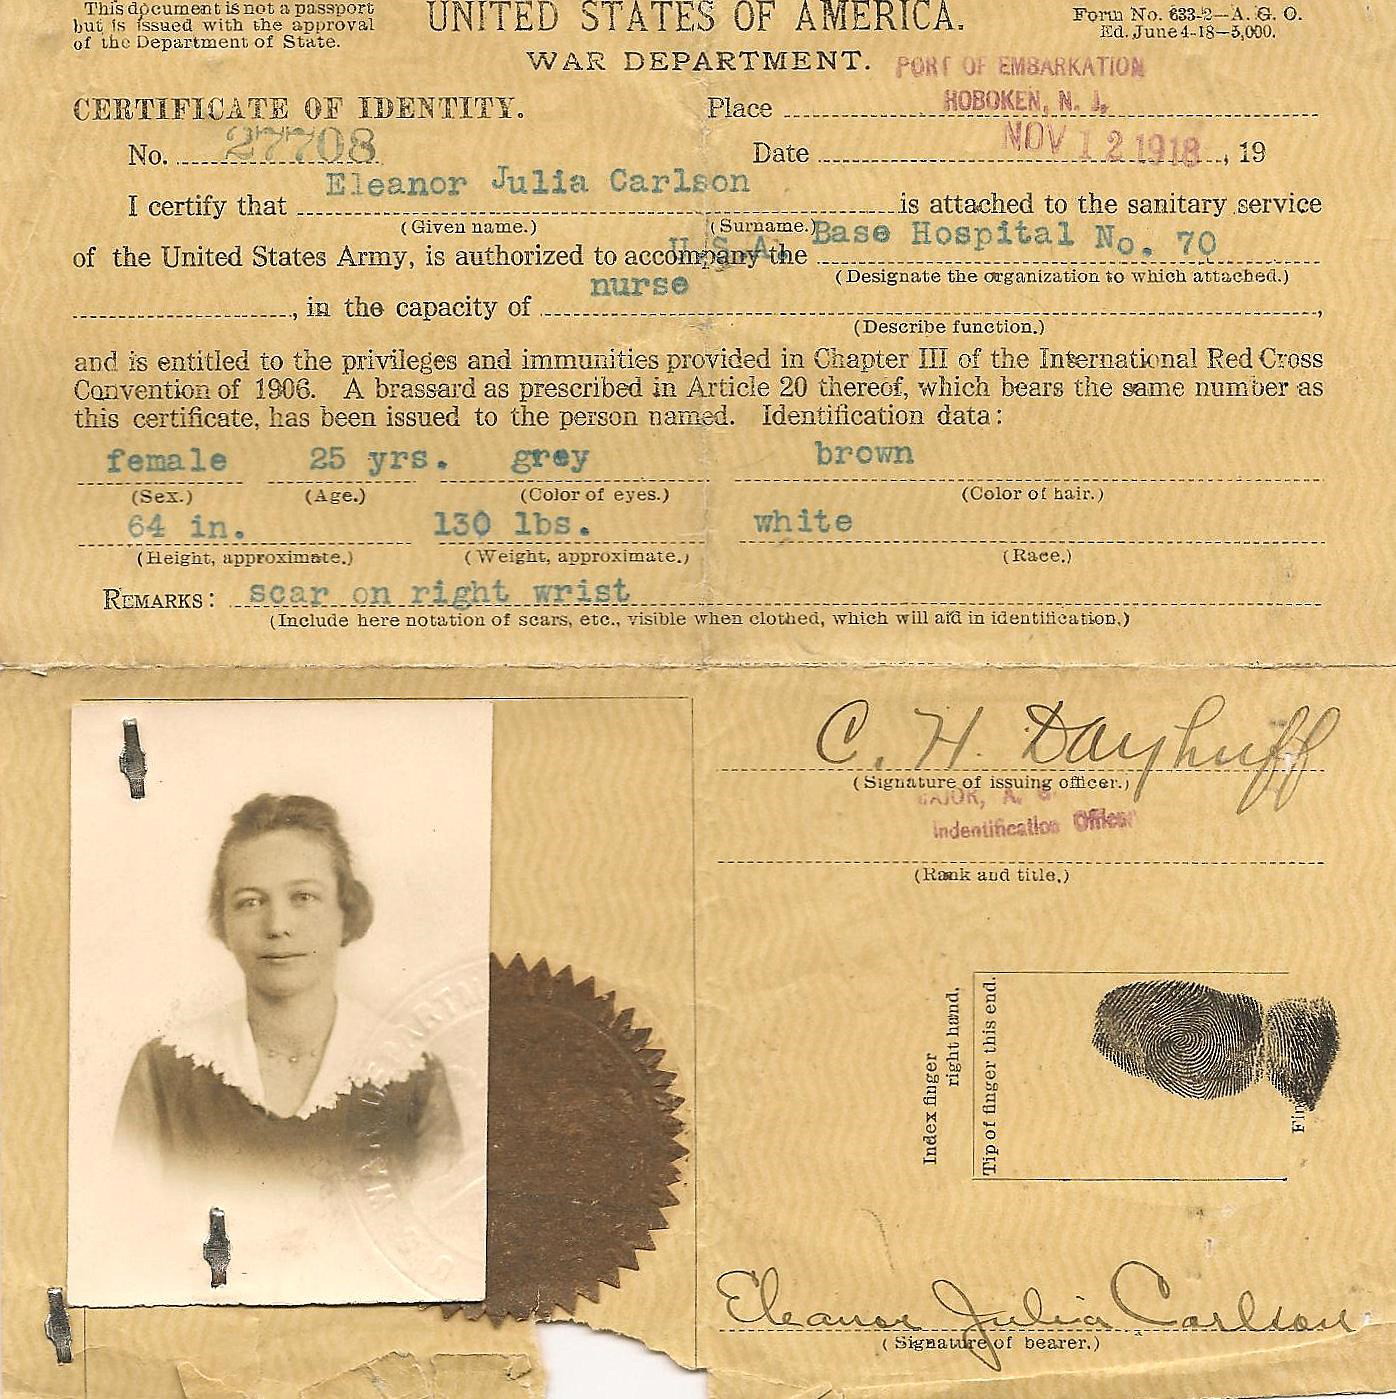 This document is not a passport
but is issued with the approval
of the Department of State.
UNITED STATES OF AMERICA.
WAR DEPARTMENT.
Form No. 633-2—A. G. O.
Ed. June 4-18—5,000.
CERTIFICATE OF IDENTITY.
PORT OF EMBARKATION
Place HOBOKEN, N. J.
No. 27708
Date NOV 12 1918, 19
I certify that Eleanor Julia Carlson is attached to the sanitary service
(Given name.) (Surname.)
of the United States Army, is authorized to accompany the U.S.A. Base Hospital No. 70
(Designate the organization to which attached.)
, in the capacity of nurse,
(Describe function.)
and is entitled to the privileges and immunities provided in Chapter III of the International Red Cross
Convention of 1906. A brassard as prescribed in Article 20 thereof, which bears the same number as
this certificate, has been issued to the person named. Identification data:
female 25 yrs. grey brown
(Sex.) (Age.) (Color of eyes.) (Color of hair.)
64 in. 130 lbs. white
(Height, approximate.) (Weight, approximate.) (Race.)
REMARKS: scar on right wrist
(Include here notation of scars, etc., visible when clothed, which will aid in identification.)
C. H. Dayhuff
(Signature of issuing officer.)
MAJOR, A. G.
Indentification Officer
(Rank and title.)
Index finger
right hand.
Tip of finger this end.
Eleanor Julia Carlson
(Signature of bearer.)